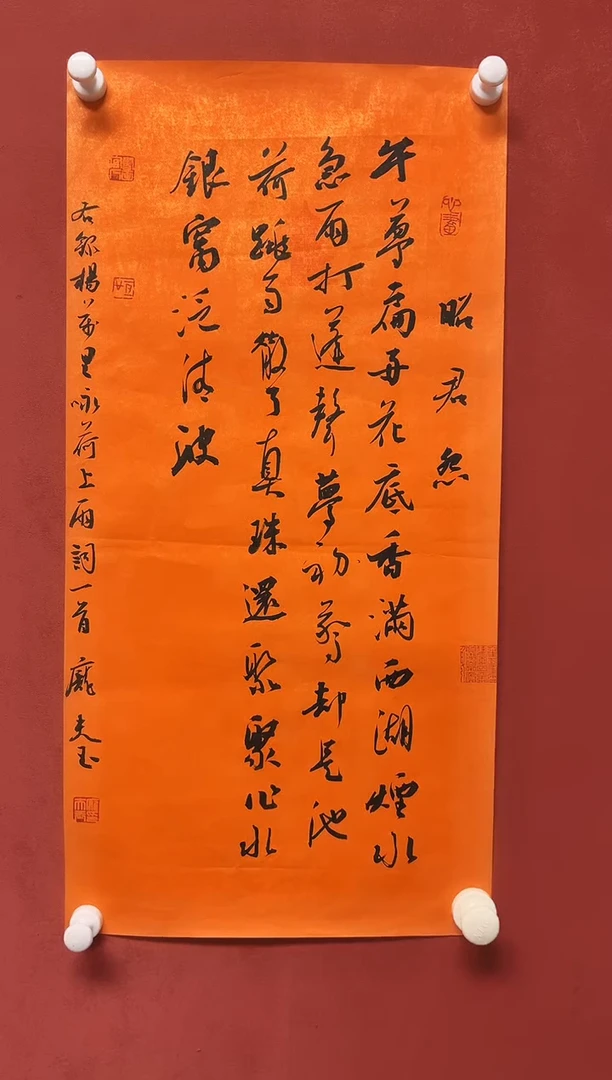 昭君怨
午夢扁舟花底香滿西湖煙水
急雨打蓬聲夢初驚却是池
荷跳雨散了真珠還聚聚作水
銀窩泛清波
右錄楊萬里咏荷上雨詞一首 龐夫玉